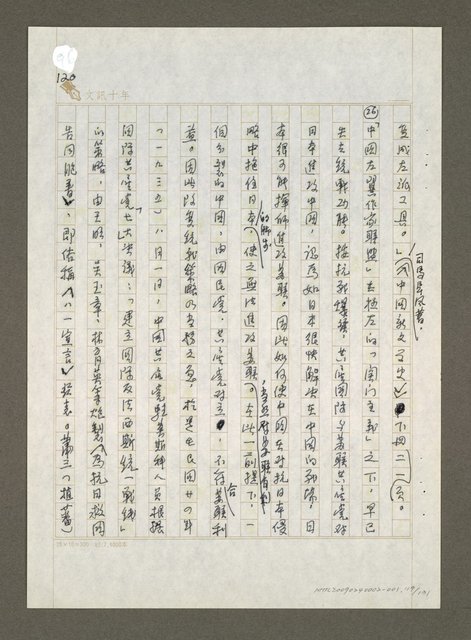 120
文訊十年
變成左派工具。」(司馬長風著,《中國新文學史》下冊二二頁。
㉖「中國左翼作家聯盟」在極左的「關門主義」之下,早已
失去統戰功能。抗戰爆發,共產國際與蘇聯共產黨對
日本進攻中國,認為如日本很快解決在中國的戰場,日
本很可能揮師進攻蘇聯。因此如何使中國在對抗日本侵
略中拖住日本的腳步,使之無法進攻蘇聯。在此一前提下,一
個分裂的中國,由國民黨、共產黨對立,不符合蘇聯利
益。因此改變統戰策略乃當務之急,於是民國廿四年
(一九三五)八月一日,中國共產黨駐莫斯科人員根據
國際共產黨「七大決議」:「建立國際反法西斯統一戰線」
的策略,由王明、吳玉章、林育英等炮製《為抗日救國
告同胞書》,即俗稱《八一宣言》發表。第三(植蕃)
25×12=300
NMTL20090240002-001, 119/191